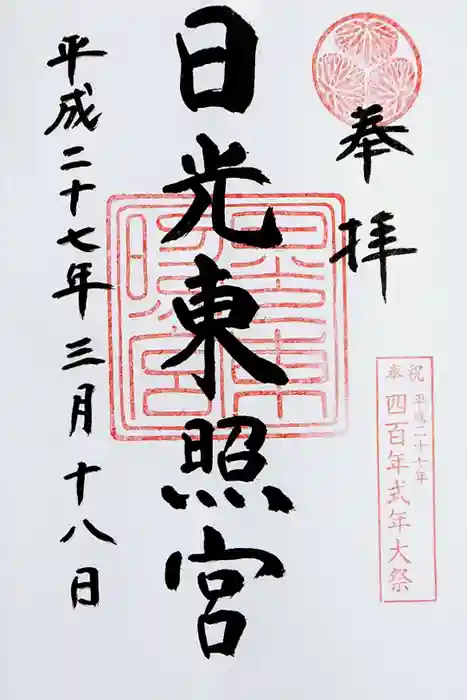 奉拝
日光東照宮
平成二十七年三月十八日
奉祝 平成二十七年
四百年式年大祭